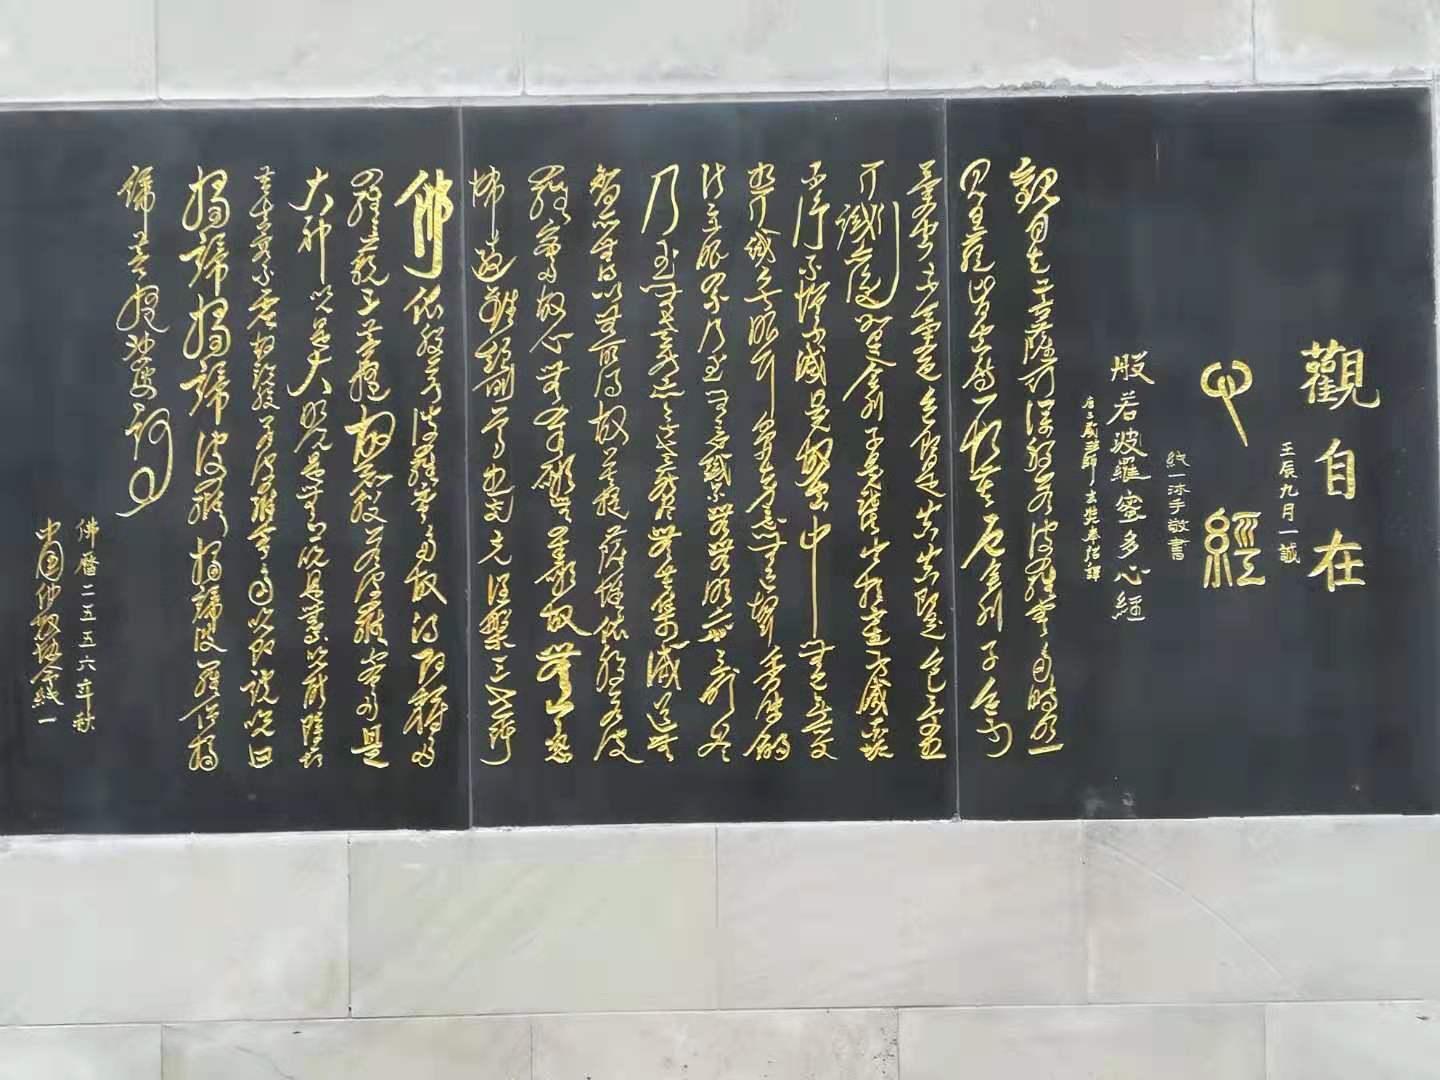 觀自在
壬辰九月一誠
心經
統一沐手敬書
般若波羅蜜多心經
唐三藏法師玄奘奉詔譯
觀自在菩薩行深般若波羅蜜多時照
見五蘊皆空度一切苦厄舍利子色不
異空空不異色色即是空空即是色受想
行識亦復如是舍利子是諸法空相不生不滅不垢
不淨不增不減是故空中無色無受
想行識無眼耳鼻舌身意無色聲香味觸
法無眼界乃至無意識界無無明亦無無明盡
乃至無老死亦無老死盡無苦集滅道無
智亦無得以無所得故菩提薩埵依般若波
羅蜜多故心無罣礙無罣礙故無有恐
怖遠離顛倒夢想究竟涅槃三世諸
佛依般若波羅蜜多故得阿耨多
羅三藐三菩提故知般若波羅蜜多是
大神咒是大明咒是無上咒是無等等咒能除一切
苦真實不虛故說般若波羅蜜多咒即說咒曰
揭諦揭諦波羅揭諦波羅僧揭
諦菩提薩婆訶
佛曆二五五六年秋
中國